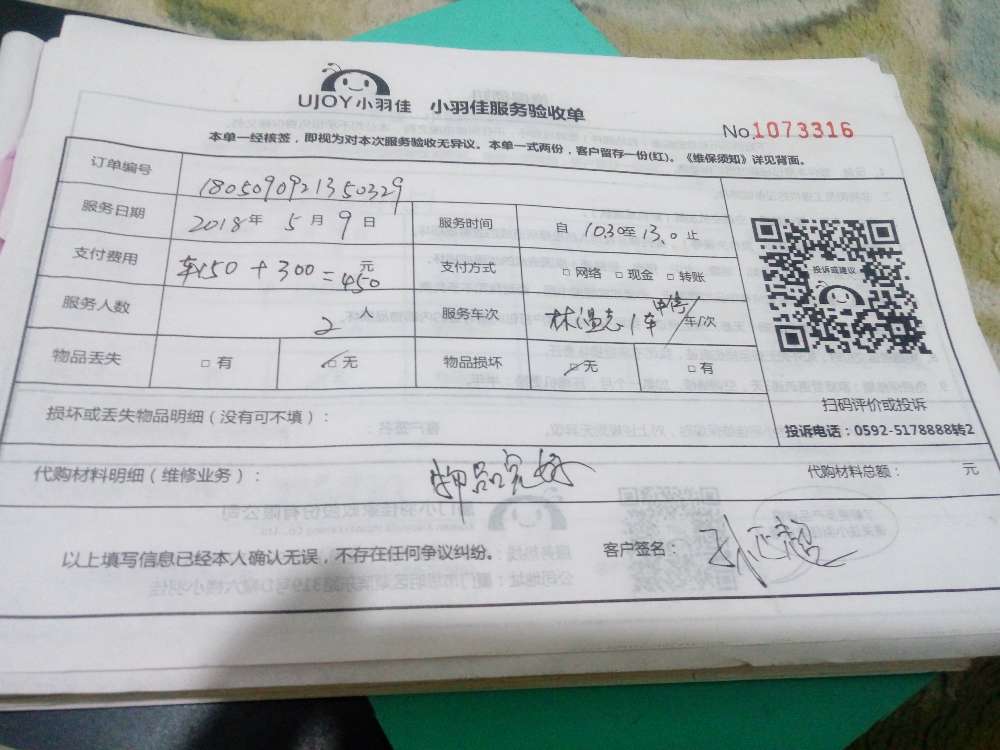 UJOY小羽佳 小羽佳服务验收单
No.1073316
本单一经核签，即视为对本次服务验收无异议。本单一式两份，客户留存一份(红)。《维保须知》详见背面。
订单编号 180509092135032​9
服务日期 2018年 5月 9日 服务时间 自 1030至13.0止
支付费用 车150+300=450元 支付方式 □网络 □现金 □转账
服务人数 2人 服务车次 1车 车/次
物品丢失 □有 □无 物品损坏 □无 □有
投诉或建议
扫码评价或投诉
投诉电话：0592-5178888转2
损坏或丢失物品明细（没有可不填）：
代购材料明细（维修业务）： 物品完好 代购材料总额： 元
以上填写信息已经本人确认无误，不存在任何争议纠纷。 客户签名：